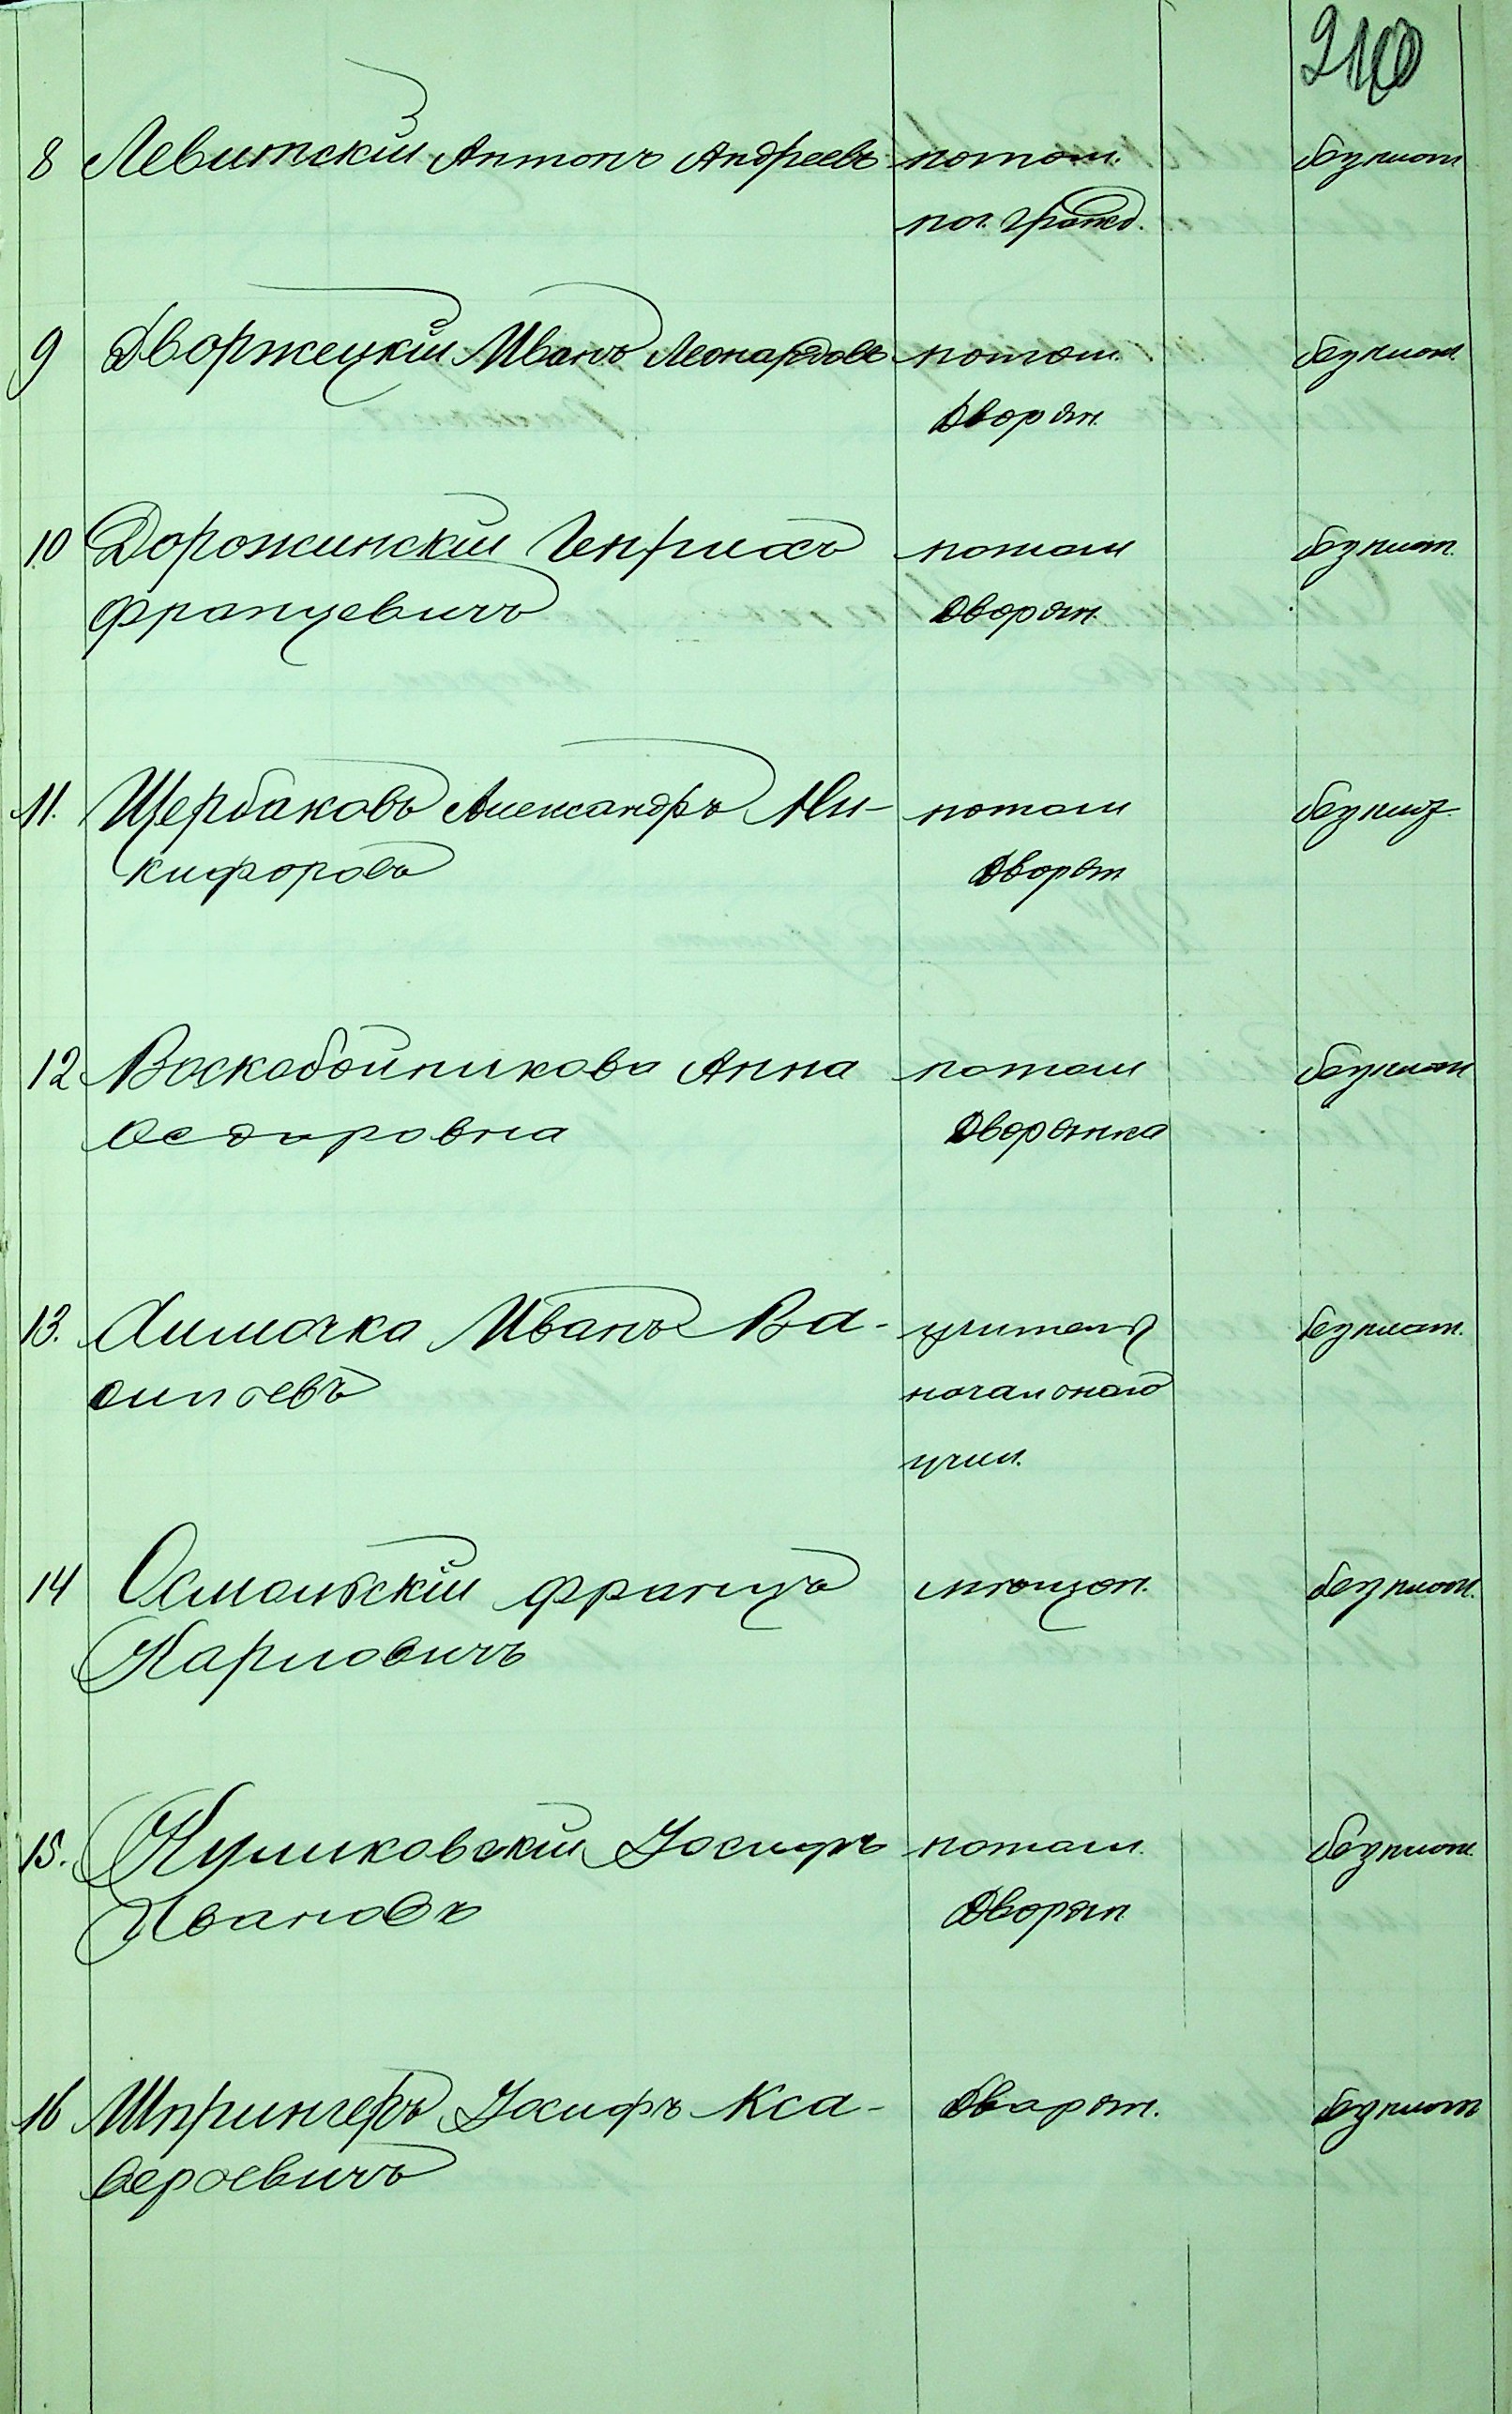 210
8 Левитскій Антонъ Андреевъ потом. безплат
поч. гражд.
9 Дворжецкій Иванъ Леонардовъ потом. безплат.
Дворян.
10 Дорожинскій Генрихъ потом безплат.
Францевичъ Дворян.
11. Щербаковъ Александръ Ни- потом безпл.
кифоровъ Дворян
12 Воскобойникова Анна потом безплат
Ѳедоровна Дворянка
13. Химочка Иванъ Ва- учитель безплат.
сильевъ начальнаго
учил.
14 Осмольскій Францъ мѣщан. безплат.
Карловичъ
15. Куликовскій Іосифъ потом. безплат.
Ивановъ Дворян
16 Шпрингеръ Іосифъ Кса- Дворян. безплат
верьевичъ